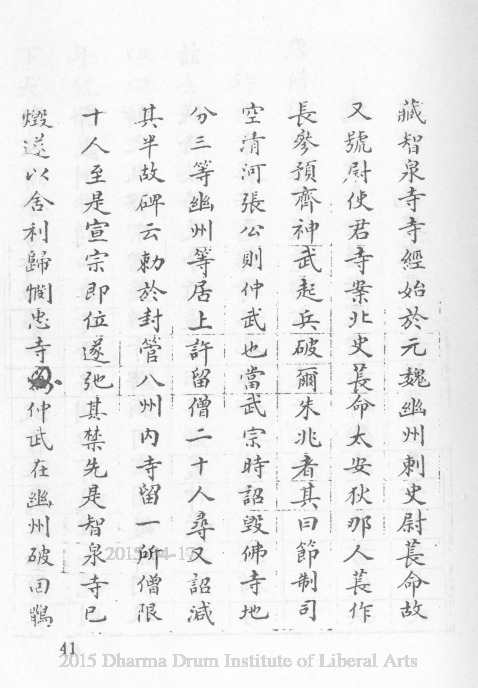 藏智泉寺寺經始於元魏幽州刺史尉萇命故
又號尉使君寺案北史萇命太安狄那人萇作
長參預齊神武起兵破爾朱兆者其曰節制司
空清河張公則仲武也當武宗時詔毀佛寺地
分三等幽州等居上許留僧二十人尋又詔減
其半故碑云勅於封管八州內寺留一所僧限
十人至是宣宗即位遂弛其禁先是智泉寺已
燬遂以舍利歸憫忠寺仲武在幽州破回鶻
41
2015-4-17
2015 Dharma Drum Institute of Liberal Arts